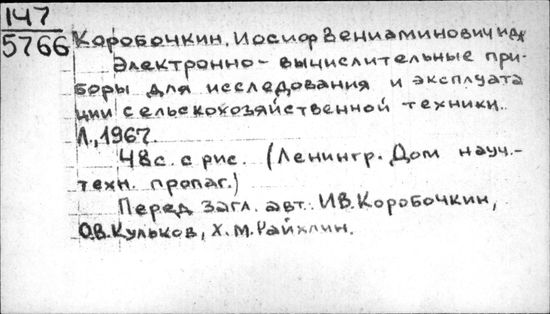 147
5766
Коробочкин, Иосиф Вениаминович и др
Электронно-вычислительные при-
боры для исследования и эксплуата
ции сельскохозяйственной техники.
Л., 1967.
48с. с рис. (Ленингр. Дом науч.-
техн. пропаг.)
Перед загл. авт.: И.В. Коробочкин,
О.В. Кульков, Х.М. Райхлин.